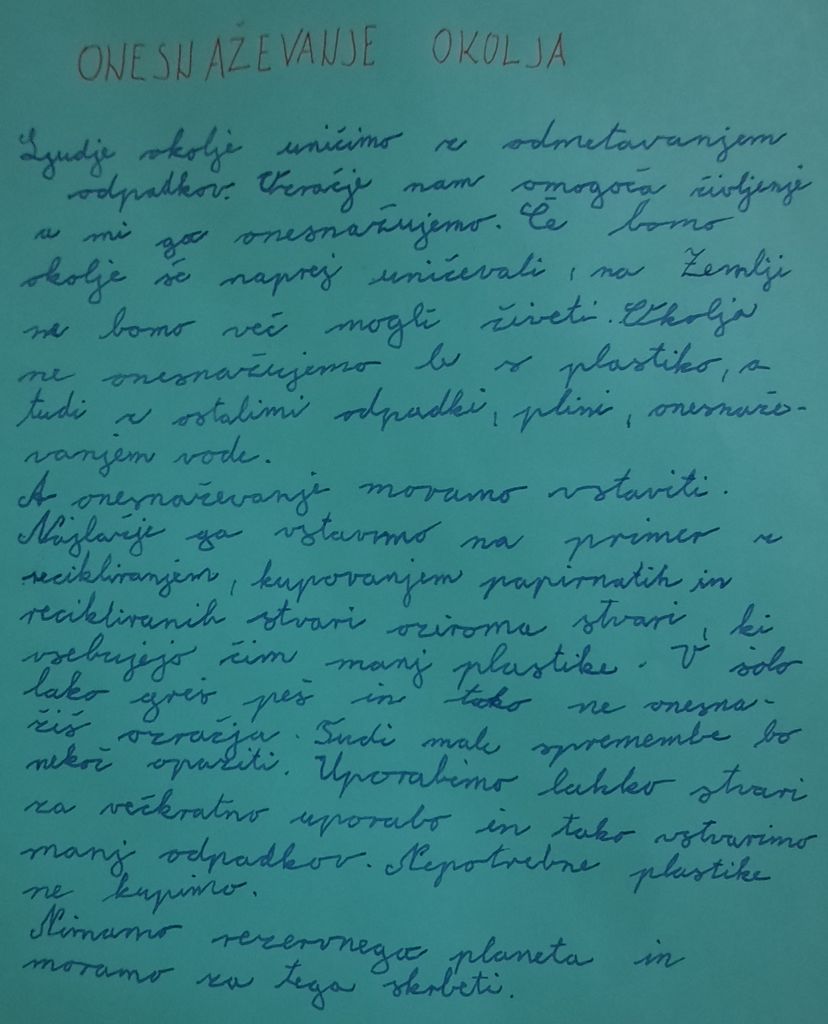 ONESNAŽEVANJE OKOLJA
Ljudje okolje uničimo z odmetavanjem
odpadkov. Ozračje nam omogoča življenje
a mi ga onesnažujemo. Če bomo
okolje še naprej uničevali, na Zemlji
ne bomo več mogli živeti. Okolja
ne onesnažujemo le s plastiko, a
tudi z ostalimi odpadki, plini, onesnaže-
vanjem vode.
A onesnaževanje moramo vstaviti.
Najlažje ga vstavimo na primer z
recikliranjem, kupovanjem papirnatih in
recikliranih stvari oziroma stvari, ki
vsebujejo čim manj plastike. V šolo
lako greš peš in tako ne onesna-
žiš ozračja. Tudi male spremembe bo
nekoč opaziti. Uporabimo lahko stvari
za večkratno uporabo in tako ustvarimo
manj odpadkov. Nepotrebne plastike
ne kupimo.
Nimamo rezervnega planeta in
moramo za tega skrbeti.